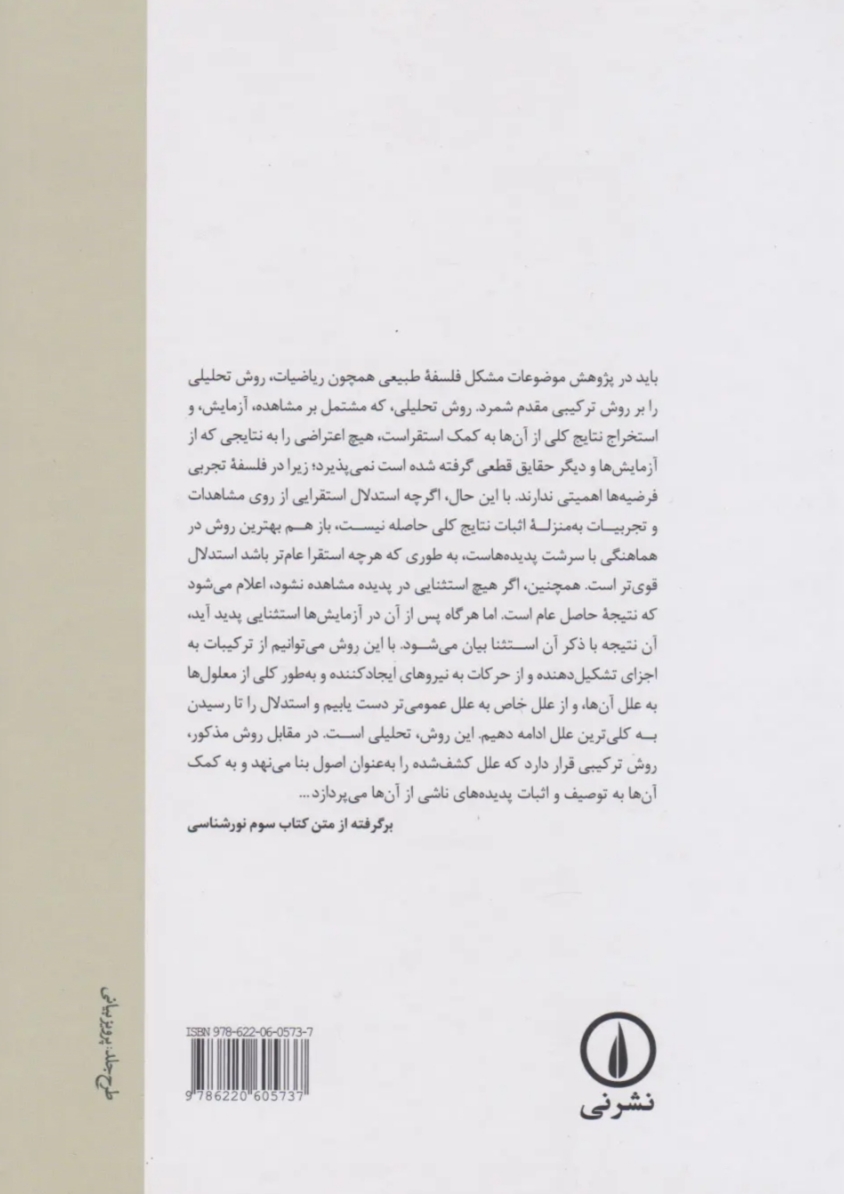 باید در پژوهش موضوعات مشکل فلسفهٔ طبیعی همچون ریاضیات، روش تحلیلی
را بر روش ترکیبی مقدم شمرد. روش تحلیلی، که مشتمل بر مشاهده، آزمایش، و
استخراج نتایج کلی از آن‌ها به کمک استقراست، هیچ اعتراضی را به نتایجی که از
آزمایش‌ها و دیگر حقایق قطعی گرفته شده است نمی‌پذیرد؛ زیرا در فلسفهٔ تجربی
فرضیه‌ها اهمیتی ندارند. با این حال، اگرچه استدلال استقرایی از روی مشاهدات
و تجربیات به‌منزلهٔ اثبات نتایج کلی حاصله نیست، باز هم بهترین روش در
هماهنگی با سرشت پدیده‌هاست، به طوری که هرچه استقرا عام‌تر باشد استدلال
قوی‌تر است. همچنین، اگر هیچ استثنایی در پدیده مشاهده نشود، اعلام می‌شود
که نتیجهٔ حاصل عام است. اما هرگاه پس از آن در آزمایش‌ها استثنایی پدید آید،
آن نتیجه با ذکر آن استثنا بیان می‌شود. با این روش می‌توانیم از ترکیبات به
اجزای تشکیل‌دهنده و از حرکات به نیروهای ایجادکننده و به‌طور کلی از معلول‌ها
به علل آن‌ها، و از علل خاص به علل عمومی‌تر دست یابیم و استدلال را تا رسیدن
به کلی‌ترین علل ادامه دهیم. این روش، تحلیلی است. در مقابل روش مذکور،
روش ترکیبی قرار دارد که علل کشف‌شده را به‌عنوان اصول بنا می‌نهد و به کمک
آن‌ها به توصیف و اثبات پدیده‌های ناشی از آن‌ها می‌پردازد...
برگرفته از متن کتاب سوم نورشناسی
طرح جلد: پرویز بیانی
ISBN 978-622-06-0573-7
9 786220 605737
نشر نی